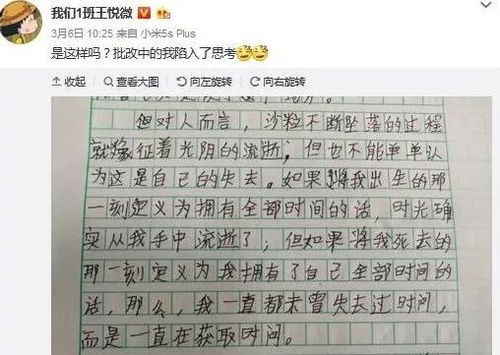 我们1班王悦微
3月6日 10:25 来自 小米5s Plus
是这样吗？批改中的我陷入了思考
收起 查看大图 向左旋转 向右旋转
但对人而言，沙粒不断坠落的过程
就像征着光阴的流逝；但也不能单单认
为这是自己的失去。如果将我出生的那
一刻定义为拥有全部时间的话，时光确
实从我手中流逝了，但如果将我死去的
那一刻定义为我拥有了自己全部时间的
话，那么，我一直都未曾失去过时间，
而是一直在获取时间。